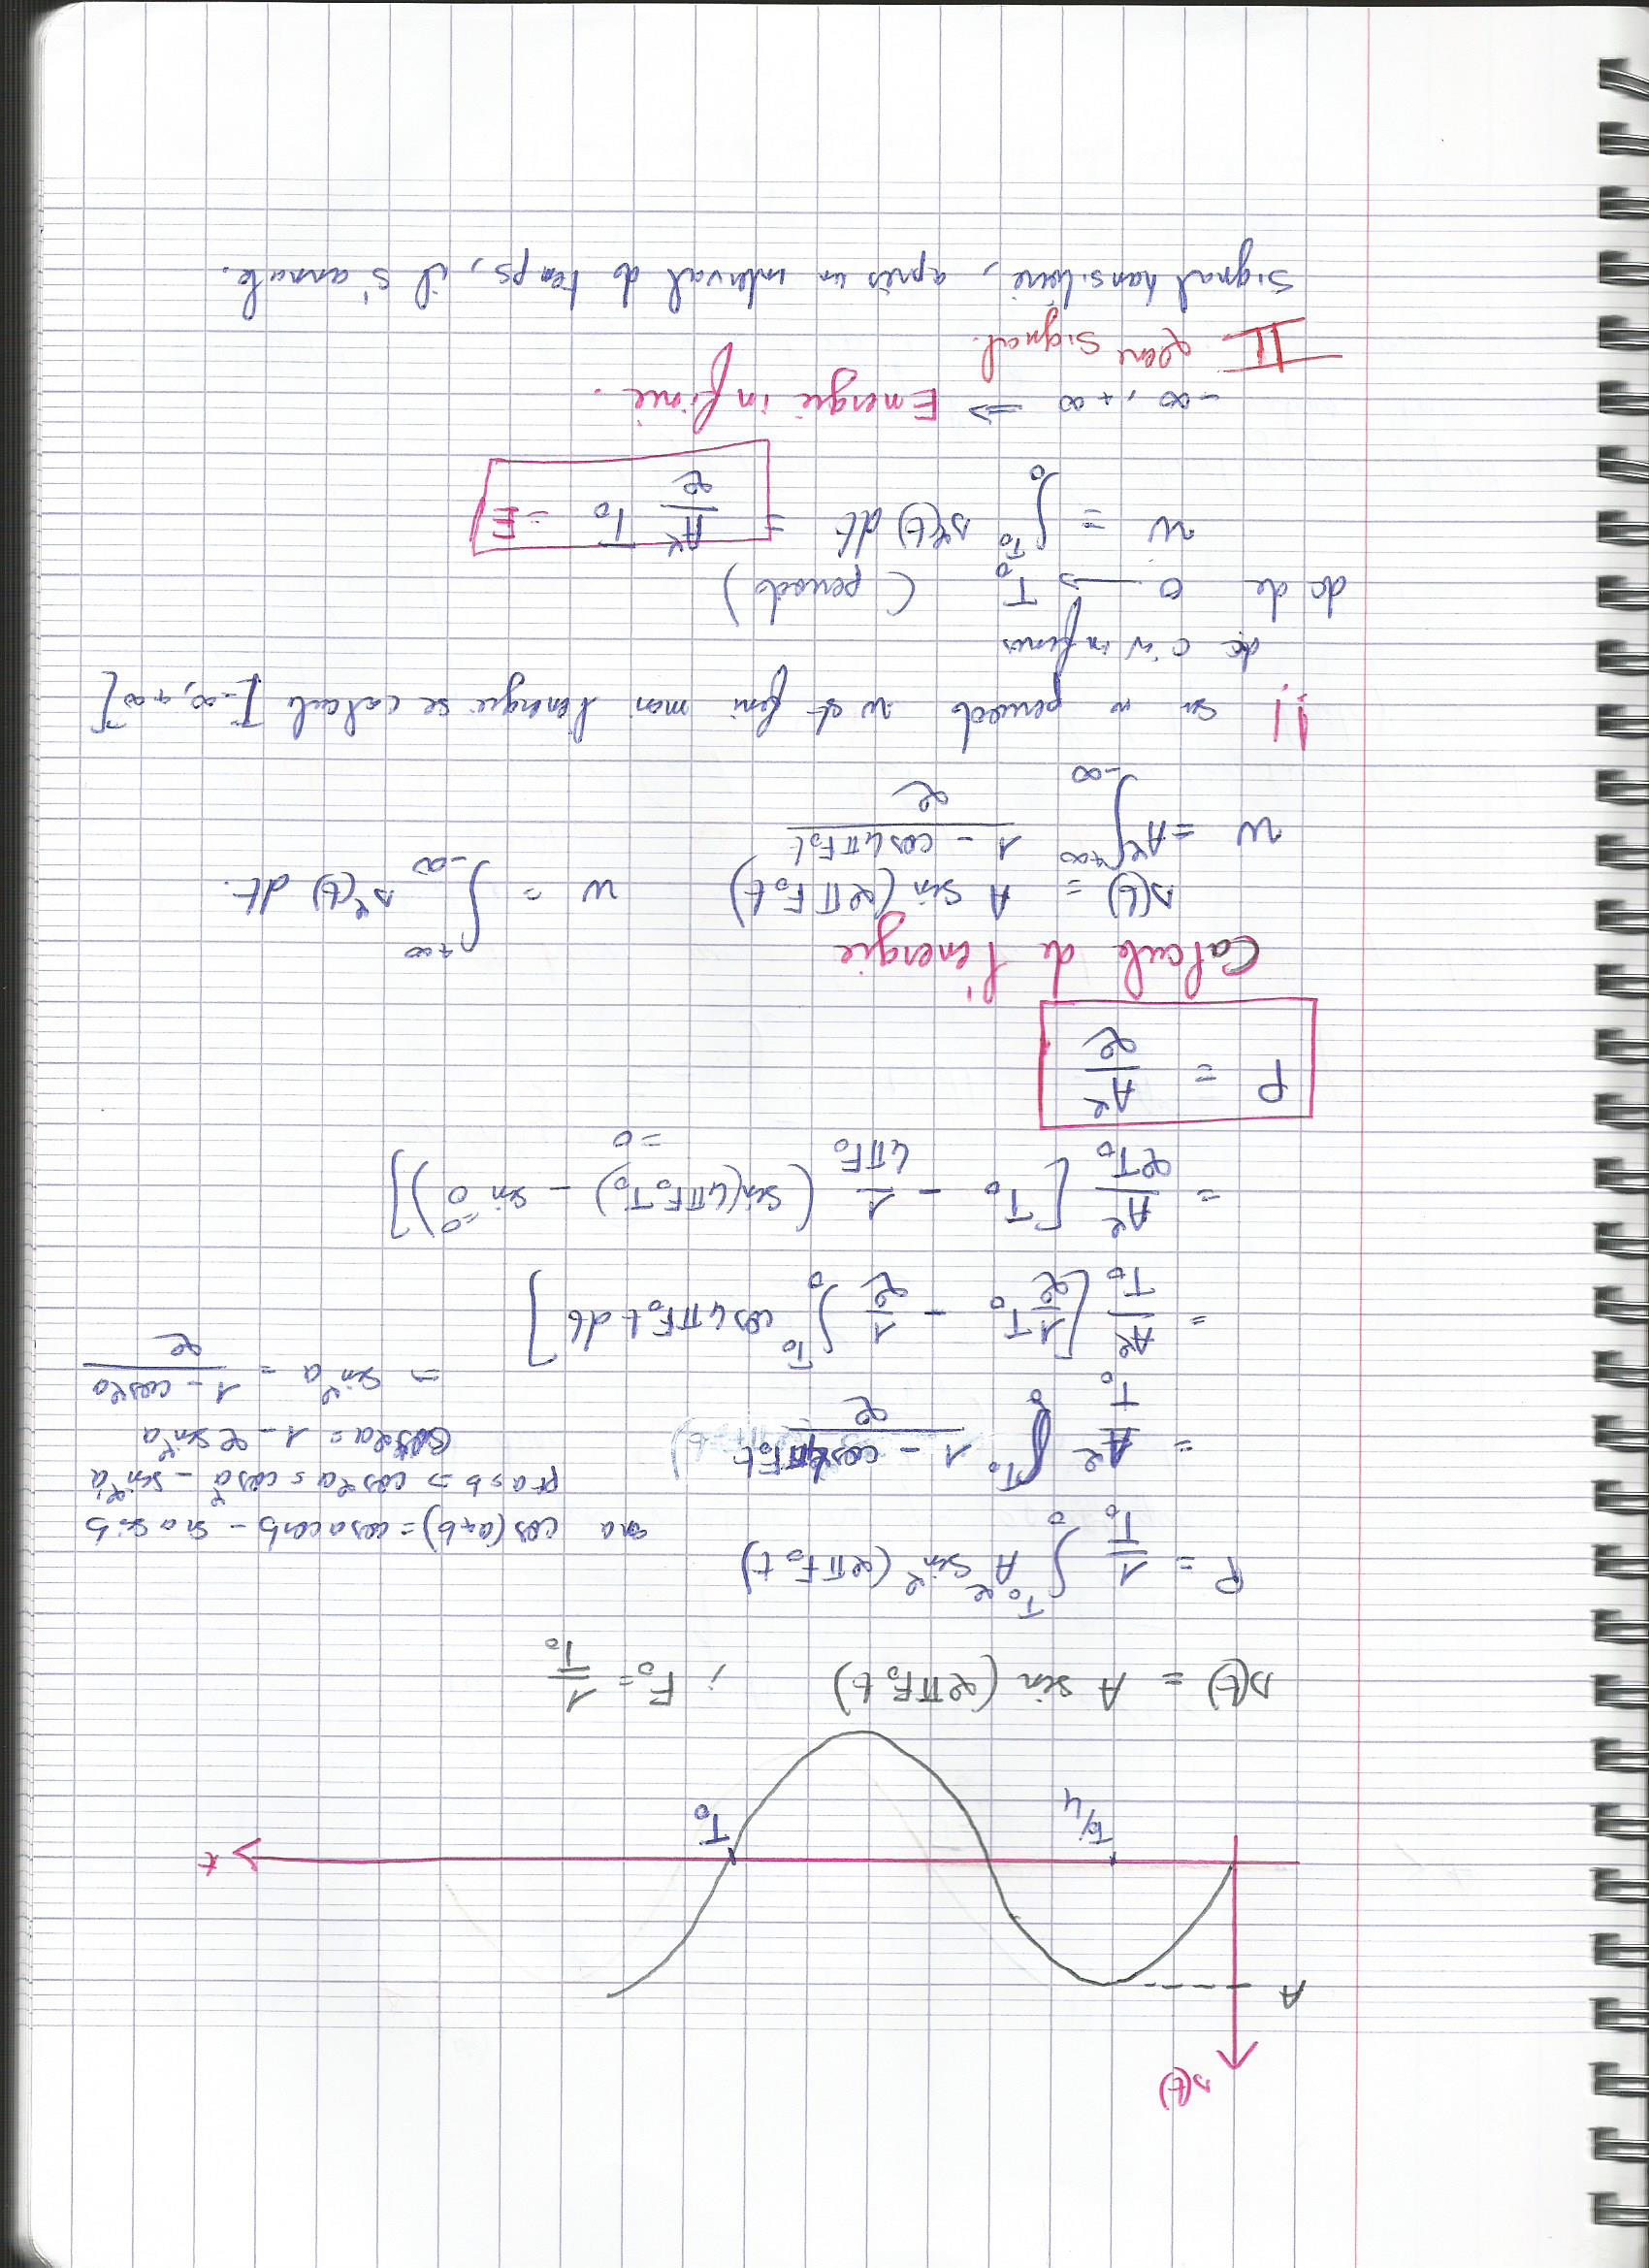 s(t)
A
T₀/4
T₀
t
s(t) = A sin (2πF₀t) ; F₀ = 1/T₀
P = 1/T₀ ∫₀^T₀ A² sin² (2πF₀t)
cos(a+b) = cosa cosb - sina sinb
pr a=b ⇒ cos2a = cos²a - sin²a
cos2a = 1 - 2 sin²a
⇒ sin²a = (1 - cos2a)/2
= A²/T₀ ∫₀^T₀ (1 - cos4πF₀t)/2
= A²/T₀ [1/2 T₀ - 1/2 ∫₀^T₀ cos4πF₀t dt]
= A²/2T₀ [T₀ - 1/4πF₀ (sin(4πF₀T₀) - sin 0)]
=0 =0
P = A²/2
Calcule de l'énergie
s(t) = A sin (2πF₀t) w = ∫₋∞^+∞ s²(t) dt.
w = A² ∫₋∞^+∞ (1 - cos4πF₀t)/2
!! sur un periode w est fini mais l'énergie se calcule [-∞, +∞[
dc c'est infinis
dc de 0 → T₀ (periode)
w = ∫₀^T₀ s²(t) dt = A²/2 T₀ = E
-∞, +∞ ⇒ Energie infinie.
II 2eme Signal.
Signal transitoire, après un interval de temps, il s'annule.